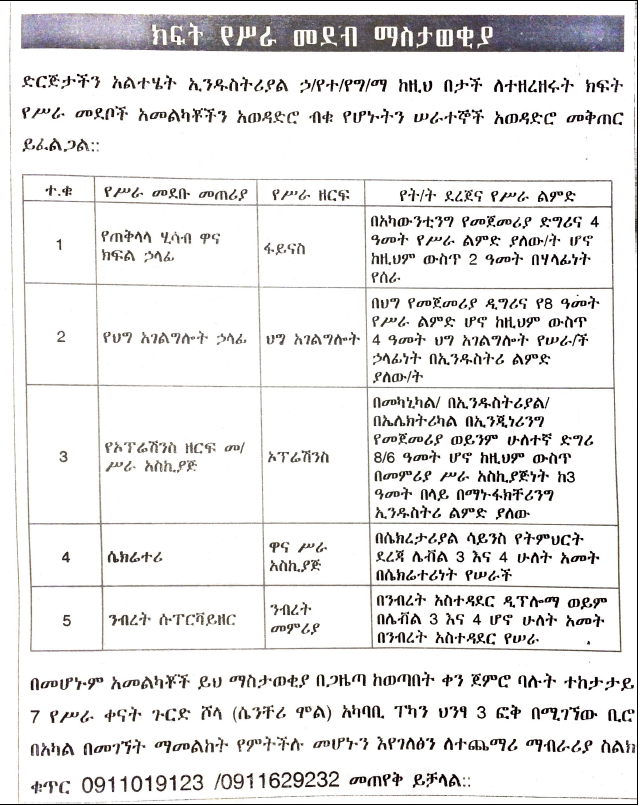 ክፍት የሥራ መደብ ማስታወቂያ
ድርጅታችን አልተሄት ኢንዱስትሪያል ኃ/የተ/የግ/ማ ከዚህ በታች ለተዘረዘሩት ክፍት
የሥራ መደቦች አመልካቾችን አወዳድሮ ብቁ የሆኑትን ሠራተኞች አወዳድሮ መቅጠር
ይፈልጋል፡፡
ተ.ቁ የሥራ መደቡ መጠሪያ የሥራ ዘርፍ የት/ት ደረጀና የሥራ ልምድ
1 የጠቅላላ ሂሳብ ዋና ክፍል ኃላፊ ፋይናስ
በአካውንቲንግ የመጀመሪያ ድግሪና 4
ዓመት የሥራ ልምድ ያለው/ት ሆኖ
ከዚህም ውስጥ 2 ዓመት በሃላፊነት
የሰራ
2 የህግ አገልግሎት ኃላፊ ህግ አገልግሎት
በህግ የመጀመሪያ ዲግሪና የ8 ዓመት
የሥራ ልምድ ሆኖ ከዚህም ውስጥ
4 ዓመት ህግ አገልግሎት የሠራ/ች
ኃላፊነት በኢንዱስትሪ ልምድ
ያለው/ት
3 የኦፕሬሽንስ ዘርፍ መ/ሥራ አስኪያጅ ኦፕሬሽንስ
በመካኒካል/ በኢንዱስትሪያል/
በኤሌክትሪካል በኢንጂነሪንግ
የመጀመሪያ ወይንም ሁለተኛ ድግሪ
8/6 ዓመት ሆኖ ከዚህም ውስጥ
በመምሪያ ሥራ አስኪያጅነት ከ3
ዓመት በላይ በማኑፋክቸሪንግ
ኢንዱስትሪ ልምድ ያለው
4 ሴክሬተሪ ዋና ሥራ አስኪያጅ
በሴክሬታሪያል ሳይንስ የትምህርት
ደረጃ ሌቭል 3 እና 4 ሁለት አመት
በሴክሬተሪነት የሠራች
5 ንብረት ሱፐርቫይዘር ንብረት መምሪያ
በንብረት አስተዳደር ዲፕሎማ ወይም
በሌቭል 3 እና 4 ሆኖ ሁለት አመት
በንብረት አስተዳደር የሠራ
በመሆኑም አመልካቾች ይህ ማስታወቂያ በጋዜጣ ከወጣበት ቀን ጀምሮ ባሉት ተከታታይ
7 የሥራ ቀናት ጉርድ ሾላ (ሴንቸሪ ሞል) አካባቢ ፐካን ህንፃ 3 ፎቅ በሚገኘው ቢሮ
በአካል በመገኘት ማመልከት የምትችሉ መሆኑን እየገለፅን ለተጨማሪ ማብራሪያ ስልክ
ቁጥር 0911019123 /0911629232 መጠየቅ ይቻላል፡፡